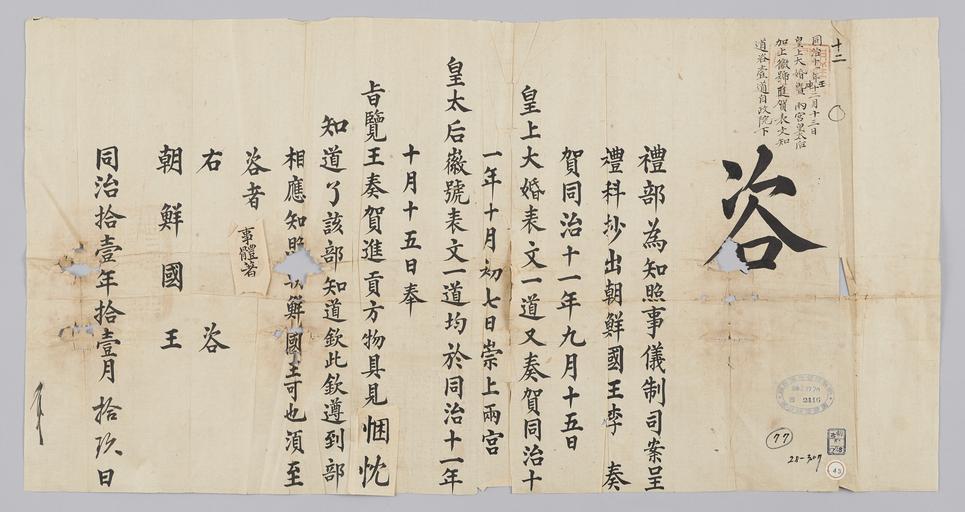 十二
同治十一年十二月十三日
皇上大婚賫 兩宮皇太后
加上徽號進賀表文知
道咨壹道自政院下
咨
禮部為知照事儀制司案呈
禮科抄出朝鮮國王李 奏
賀同治十一年九月十五日
皇上大婚表文一道又奏賀同治十
一年十月初七日崇上兩宮
皇太后徽號表文一道均於同治十一年
十月十五日奉
旨覽王奏賀進貢方物具見悃忱
知道了該部知道欽此欽遵到部
相應知照朝鮮國王可也須至
咨者
事體著
右 咨
朝鮮國王
同治拾壹年拾壹月拾玖日
2116
77
28-307
43